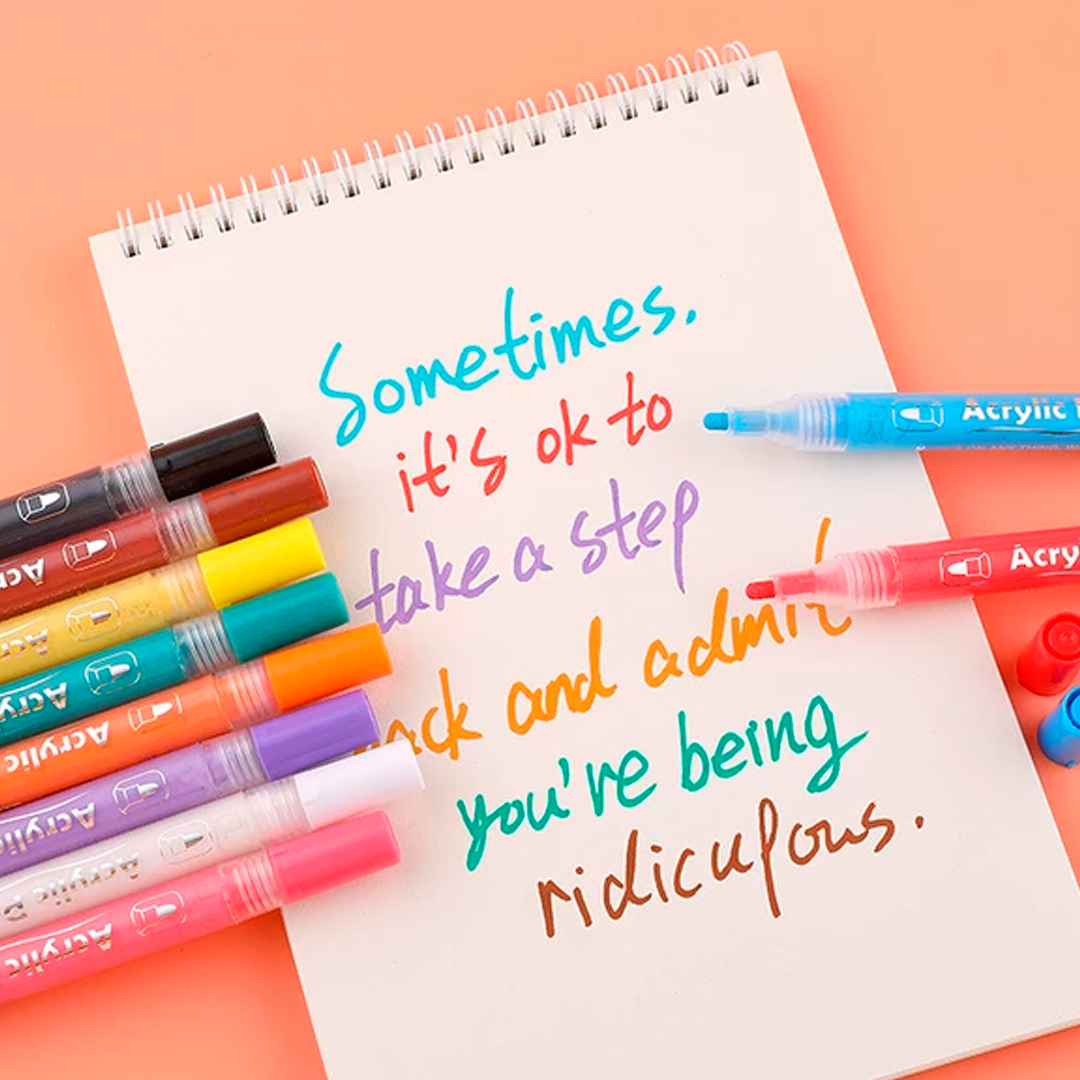 Sometimes.
it's ok to
take a step
ack and admit
you're being
ridiculous.
Acrylic
Acry
Acr
Acrylic
Acrylic
Acrylic
Acrylic P
Acrylic